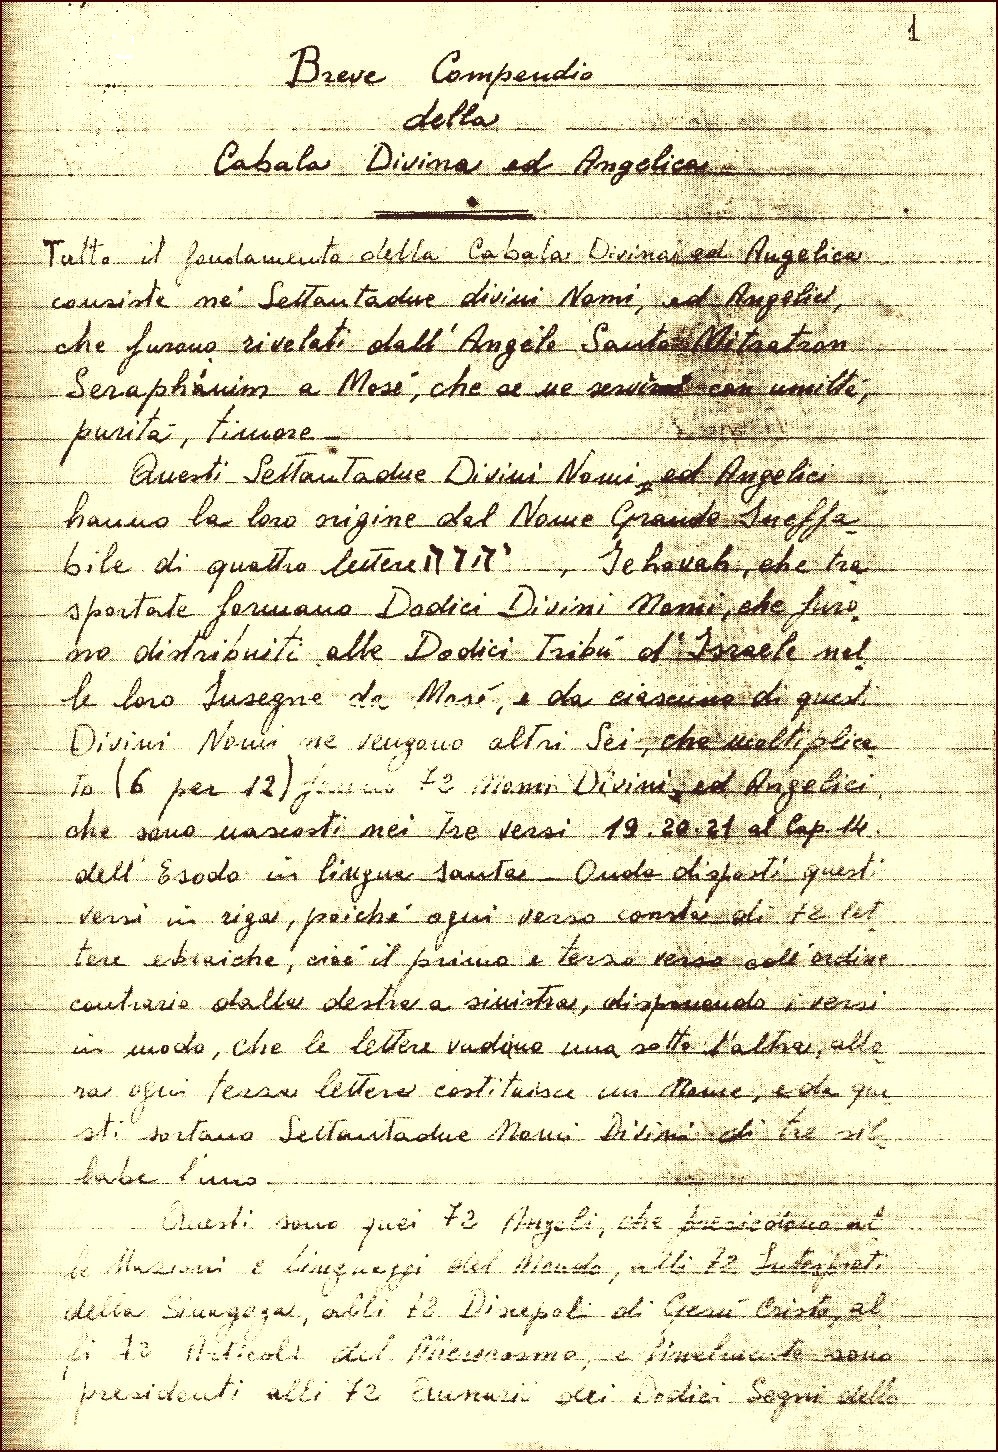 1
Breve Compendio
della
Cabala Divina ed Angelica
Tutto il fondamento della Cabala Divina ed Angelica
consiste ne' Settantadue divini Nomi, ed Angelici,
che furono rivelati dall' Angelo Santo Mitratron
a Mosé, che se ne con umiltà,
purità, timore _
Questi Settantadue Divini Nomi, ed Angelici
hanno la loro origine dal Nome Grande Ineffa-
bile di quattro lettere יהוה , Jehovah, che tra
sportate formano Dodici Divini Nomi, che furo-
no distribuiti alle Dodici Tribù d'Israele nel-
le loro Insegne da Mosé, e da ciascuno di questi
Divini Nomi ne vengono altri Sei, che moltiplica
to (6 per 12) fanno 72 Nomi Divini, ed Angelici,
che sono nascosti nei tre versi 19.20.21 al Cap. 14.
dell' Esodo in lingua santa _ Onde disposti questi
versi in riga, poiché ogni verso consta di 72 let
tere ebraiche, cioé il primo e terzo verso coll'ordine
contrario dalla destra a sinistra, disponendo i versi
in modo, che le lettere vadino una sotto l'altra, allo-
ra ogni terza lettera costituisce un Nome, e da que
sti sortano Settantadue Nomi Divini di tre sil-
labe l'uno.
Questi sono quei 72 Angeli, che presiedono al
le Nazioni e linguaggi del Mondo, alli 72 Interpreti
della Sinagoga, alli 72 Discepoli di Gesù Cristo, al
li 72 Articoli del Microcosmo, e finalmente sono
presidenti alli 72 dei Dodici Segni dello